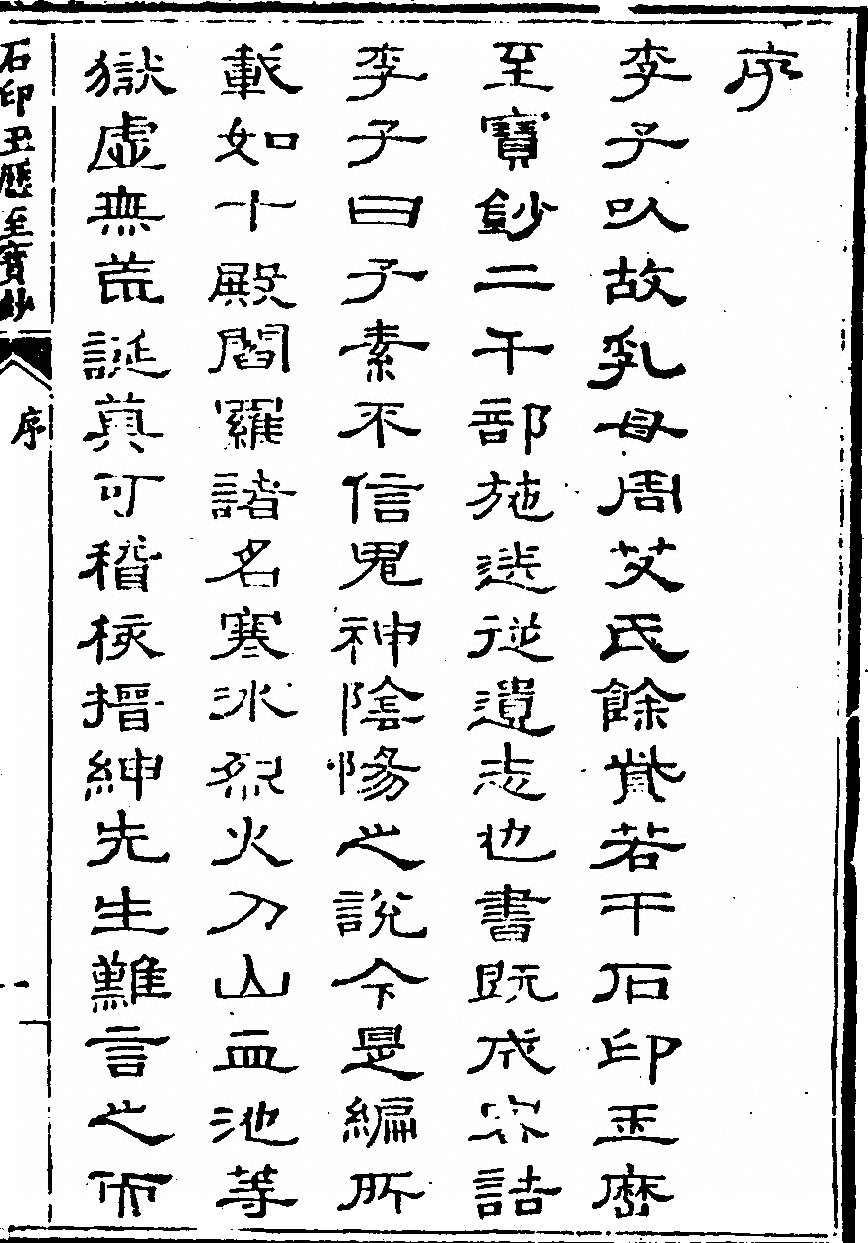 序
李子以故乳母周艾氏餘貲若干石印玉歷
至寶鈔二千部施送從遺志也書既成客詰
李子曰子素不信鬼神陰陽之說今是編所
載如十殿閻羅諸名寒冰烈火刀山血池等
獄虛無荒誕莫可稽核搢紳先生難言之而
石印玉歷至寶鈔
序